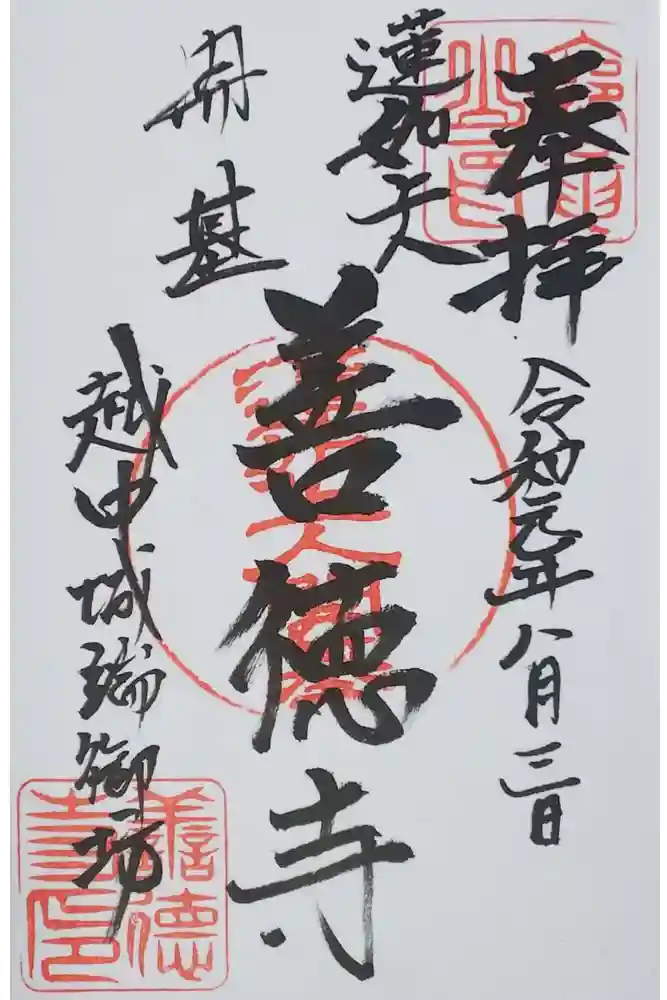 奉拝
令和元年八月三日
蓮如上人
開基
善徳寺
越中城端御坊
善徳寺印